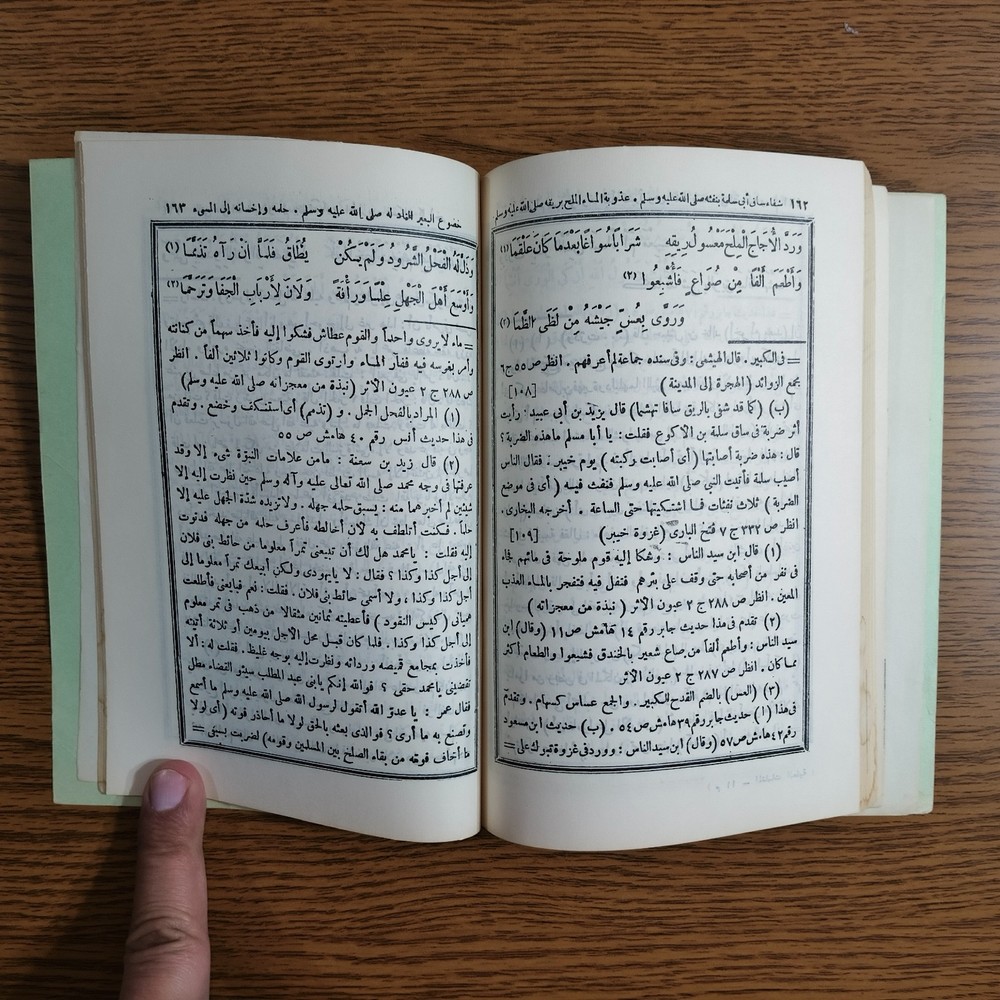 ١٦٢ شفاء ساق أبى سلمة بنفثه صلى الله عليه وسلم . عذوبة الماء الملح بريقه صلى الله عليه وسلم
وَرَدَّ الْأُجَاجَ الْمِلْحَ مَعْسُولُ رِيقِهِ شَرَابًا سُوَاغًا بَعْدَمَا كَانَ عَلْقَمَا (١)
وَأَطْعَمَ أَلْفًا مِنْ صُوَاعٍ فَأُشْبِعُوا (٢)
وَرَوَّى بِعُسٍّ جَيْشَهُ مِنْ لَظَى الظَّمَا (٣)
= فى الكبير . قال الهيثمى : وفى سنده جماعة لم أعرفهم . انظر ص ٥٥ ج ٦
مجمع الزوائد (الهجرة إلى المدينة) [١٠٨]
(ب) (كما قد شفى بالريق ساقا تهشما) قال يزيد بن أبى عبيد : رأيت
أثر ضربة فى ساق سلمة بن الأكوع فقلت : يا أبا مسلم ما هذه الضربة ؟
قال : هذه ضربة أصابتها (أى أصابت ركبته) يوم خيبر . فقال الناس
أصيب سلمة فأتيت النبى صلى الله عليه وسلم فنفث فيه (أى فى موضع
الضربة) ثلاث نفثات فما اشتكيتها حتى الساعة . أخرجه البخارى .
انظر ص ٣٣٢ ج ٧ فتح البارى (غزوة خيبر) [١٠٩]
(١) قال ابن سيد الناس : وشكا إليه قوم ملوحة فى مائهم فجاء
فى نفر من أصحابه حتى وقف على بئرهم فتفل فيه فتفجر بالماء العذب
المعين . انظر ص ٢٨٨ ج ٢ عيون الأثر (نبذة من معجزاته)
(٢) تقدم فى هذا حديث جابر رقم ١٤ هامش ص ١١ (وقال) ابن
سيد الناس : وأطعم ألفا من صاع شعير بالخندق فشبعوا والطعام أكثر
مما كان . انظر ص ٢٨٧ ج ٢ عيون الأثر
(٣) (العس) بالضم القدح الكبير . والجمع عساس كسهام . وتقدم
فى هذا (١) حديث جابر رقم ٣٩ هامش ص ٥٤ . (ب) حديث ابن مسعود
رقم ٤٢ هامش ص ٥٧ (وقال) ابن سيد الناس : وورد فى غزوة تبوك على =
خضوع البعير الناد له صلى الله عليه وسلم . حلمه وإحسانه إلى المسىء ١٦٣
وَذَلَّ لَهُ الْفَحْلُ الشَّرُودُ وَلَمْ يَكُنْ يُطَاقُ فَلَمَّا أَنْ رَآهُ تَذَمَّمَا (١)
وَأَوْسَعَ أَهْلَ الْجَهْلِ عِلْمًا وَرَأْفَةً وَلَانَ لِأَرْبَابِ الْجَفَا وَتَرَحَّمَا (٢)
= ماء لا يروى واحداً والقوم عطاش فشكوا إليه فأخذ سهماً من كنانته
وأمر بغرسه فيه ففار الماء وارتوى القوم وكانوا ثلاثين ألفاً . انظر
ص ٢٨٨ ج ٢ عيون الأثر (نبذة من معجزاته صلى الله عليه وسلم)
(١) المراد بالفحل الجمل . و (تذمم) أى استنكف وخضع . وتقدم
فى هذا حديث أنس رقم ٤٠ هامش ص ٥٥
(٢) قال زيد بن سعنة : ما من علامات النبوة شىء إلا وقد
عرفتها فى وجه محمد صلى الله تعالى عليه وآله وسلم حين نظرت إليه إلا
شيئين لم أخبرهما منه : يسبق حلمه جهله . ولا تزيده شدة الجهل عليه إلا
حلماً . فكنت أتلطف به لأن أخالطه فأعرف حلمه من جهله فدنوت
إليه فقلت : يا محمد هل لك أن تبيعنى تمراً معلوما من حائط بنى فلان
إلى أجل كذا وكذا ؟ فقال : لا يا يهودى ولكن أبيعك تمراً معلوما إلى
أجل كذا وكذا ، ولا أسمى حائط بنى فلان . فقلت : نعم فبايعنى فأطلقت
هميانى (كيس النقود) فأعطيته ثمانين مثقالا من ذهب فى تمر معلوم
إلى أجل كذا وكذا . فلما كان قبل محل الأجل بيومين أو ثلاثة أتيته
فأخذت بمجامع قميصه وردائه ونظرت إليه بوجه غليظ . فقلت له : ألا
تقضينى يا محمد حقى ؟ فوالله إنكم يا بنى عبد المطلب سيئو القضاء مطل
فقال عمر : يا عدو الله أتقول لرسول الله صلى الله عليه وسلم ما أسمع
وتصنع به ما أرى ؟ فوالذى بعثه بالحق لولا ما أحاذر فوته (أى لولا
ما أخاف فوته من بقاء الصلح بين المسلمين وقومه) لضربت بسيفى =